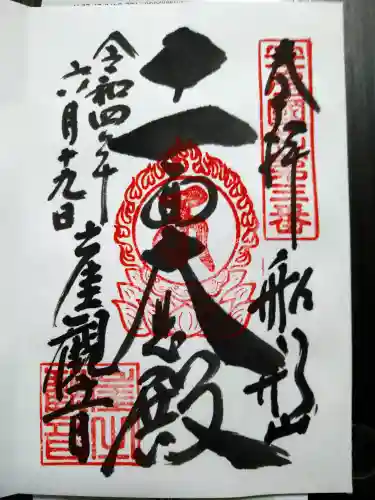 奉拝
船形山
第三番
十一面大悲殿
令和四年
六月十九日
崖觀音